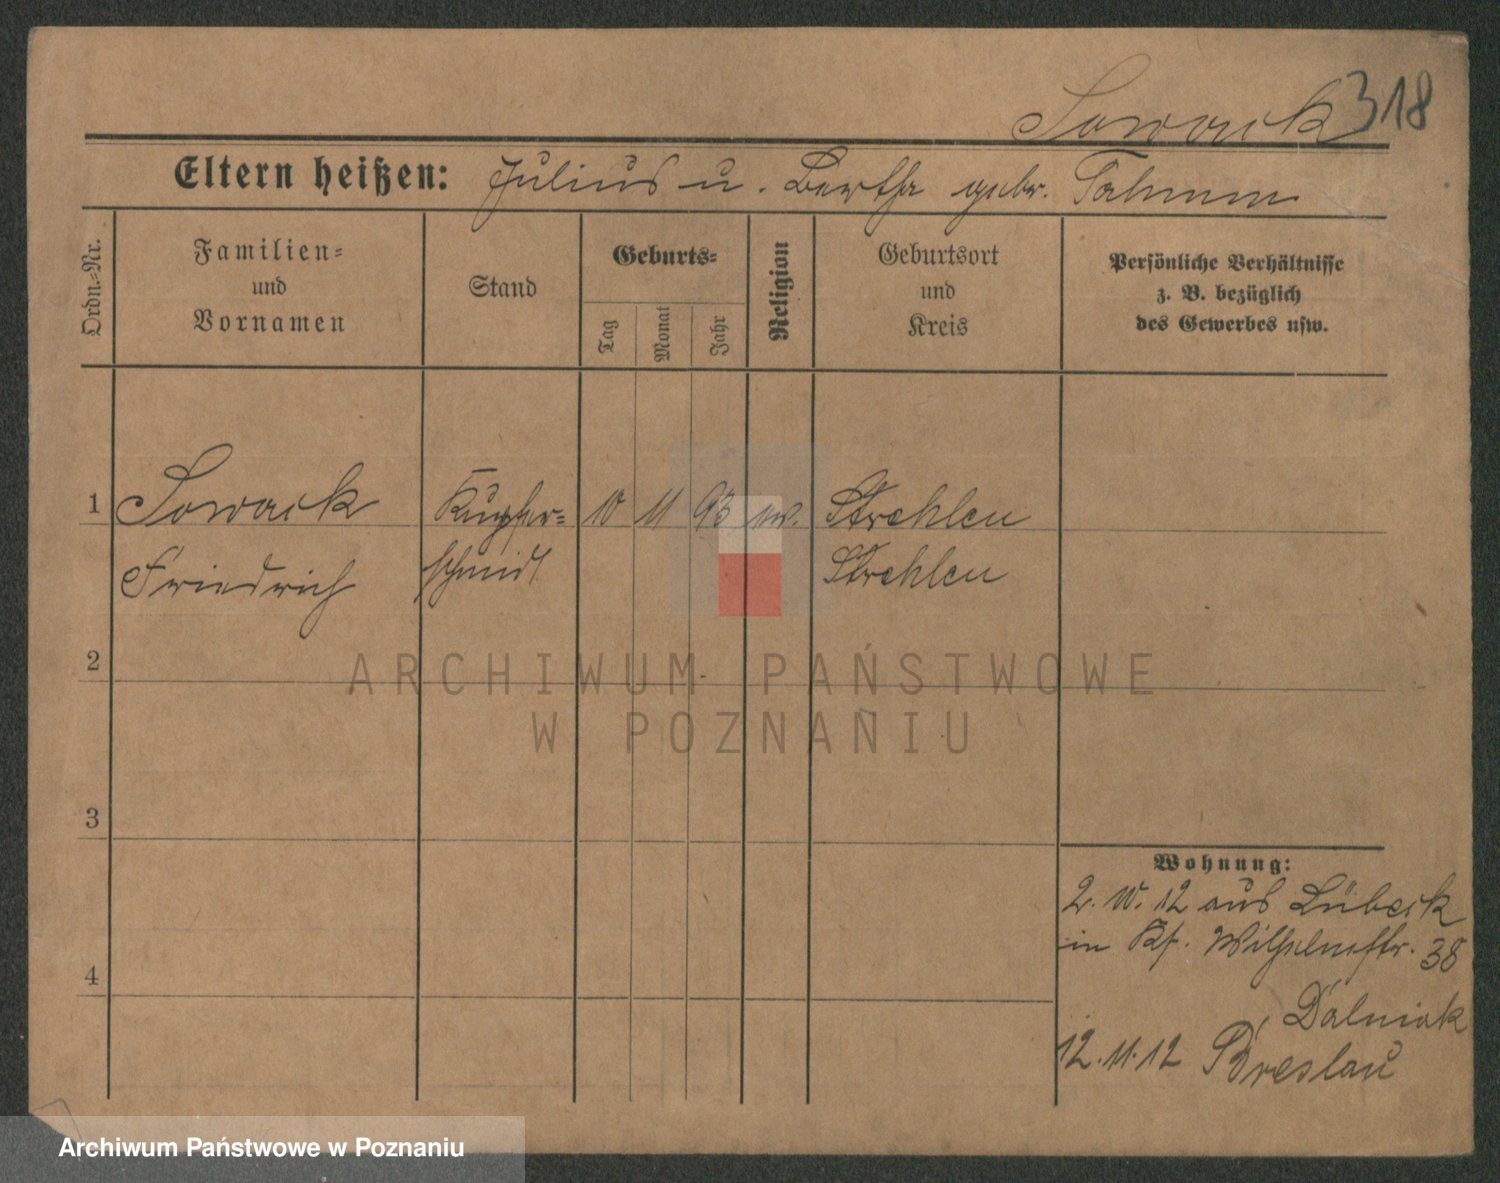 Sowack 318
Eltern heißen: Julius u. Bertha gebr.
Ordn.-Nr.
Familien-
und
Vornamen
Stand
Geburts-
Tag
Monat
Jahr
Religion
Geburtsort
und
Kreis
Persönliche Verhältnisse
z. B. bezüglich
des Gewerbes usw.
1 Sowack Kupfer- 10 11 93 ev. Strehlen
Friedrich schmidt Strehlen
2
ARCHIWUM PAŃSTWOWE
W POZNANIU
3
Wohnung:
2. 10. 12 aus Lübeck
in Wilhelmstr. 38
4
12. 11. 12 Breslau
Archiwum Państwowe w Poznaniu